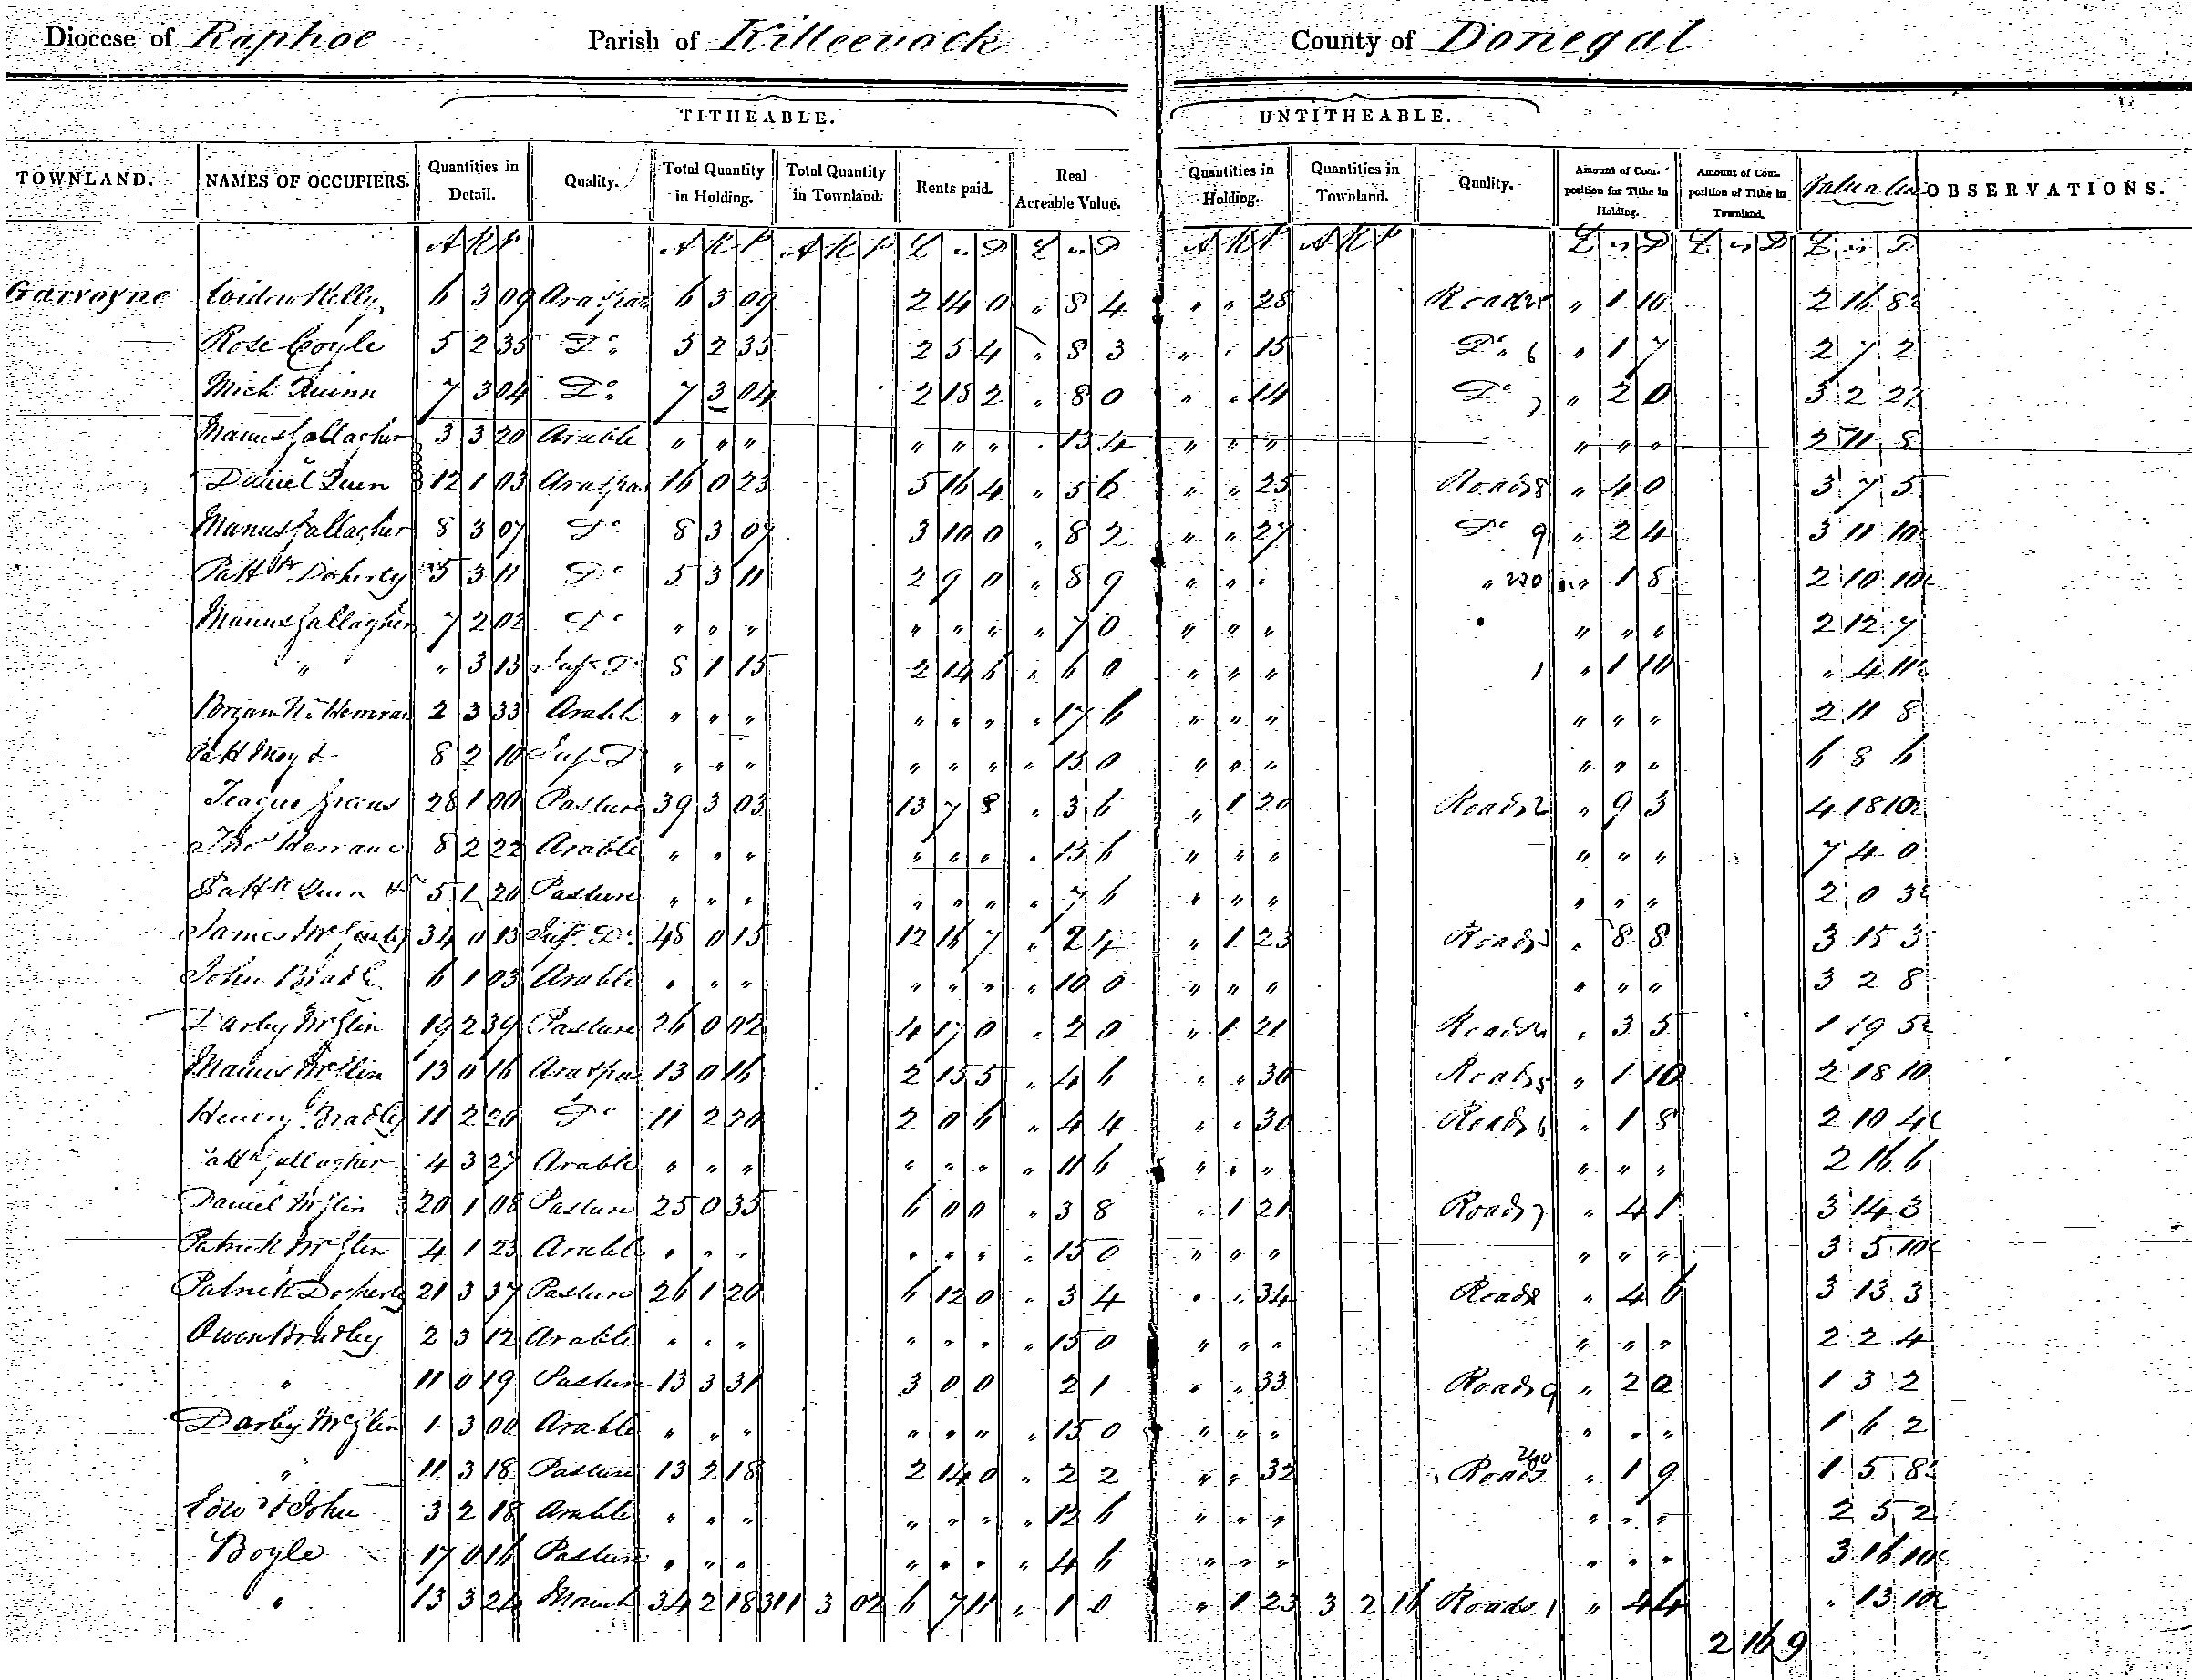 Diocese of Raphoe Parish of Killeevock County of Donegal
TITHEABLE. UNTITHEABLE.
TOWNLAND. NAMES OF OCCUPIERS. Quantities in Detail. Quality. Total Quantity in Holding. Total Quantity in Townland. Rents paid. Real Acreable Value. Quantities in Holding. Quantities in Townland. Quality. Amount of Composition for Tithe in Holding. Amount of Composition of Tithe in Townland. OBSERVATIONS.
A R P A R P A R P £ s D £ s D A R P A R P £ s D £ s D £ s D
Garvayne Widow Kelly 6 3 09 Ara & pas 6 3 09 2 14 0 " 8 4 " " 28 Roads " 1 10 2 16 8
Rose Coyle 5 2 35 Do 5 2 35 2 5 4 " 8 3 " " 15 Do 6 " 1 7 2 7 2
Mich Quinn 7 3 04 Do 7 3 04 2 18 2 " 8 0 " " 14 Do 7 " 2 0 3 2 2
Manus Gallagher 3 3 20 Arable " " " " " " " 13 4 " " " " " " 2 11 8
Daniel Quin 12 1 03 Ara & pas 16 0 23 5 16 4 " 5 6 " " 25 Roads 8 " 4 0 3 7 5
Manus Gallagher 8 3 07 Do 8 3 07 3 10 0 " 8 2 " " 27 Do 9 " 2 4 3 11 10
Pattk Doherty 5 3 11 Do 5 3 11 2 9 0 " 8 9 " " " " 230 " 1 8 2 10 10
Manus Gallagher 7 2 02 Do " " " " " " " 7 0 " " " " " " 2 12 7
" " 3 13 Infr Do 8 1 15 2 14 6 " 6 0 " " " 1 " 1 10 " 4 11
2 3 33 Arable " " " " " " " 17 6 " " " " " " 2 11 8
8 2 10 " " " " " " " 15 0 " " " " " " 6 8 6
Teague 28 1 00 Pasture 39 3 03 13 7 8 " 3 6 " 1 20 Roads 2 " 9 3 4 18 10
Thos 8 2 22 Arable " " " " " " " 15 6 " " " " " " 7 4 0
Pattk Quin 5 1 20 Pasture " " " " " " " 7 6 " " " " " " 2 0 3
James 34 0 13 Infr Do 48 0 15 12 16 7 " 2 4 " 1 23 Roads 3 " 8 8 3 15 3
John 6 1 03 Arable " " " " " " " 10 0 " " " " " " 3 2 8
Darby McGlin 19 2 39 Pasture 26 0 02 4 17 0 " 2 0 " 1 21 Roads 4 " 3 5 1 19 5
Manus McGlin 13 0 16 Ara & pas 13 0 16 2 15 5 " 4 6 " " 36 Roads 5 " 1 10 2 18 10
Henery Bradley 11 2 20 Do 11 2 20 2 0 6 " 4 4 " " 30 Roads 6 " 1 8 2 10 4
Pattk Gallagher 4 3 27 Arable " " " " " " " 11 6 " " " " " " 2 16 6
Daniel McGlin 20 1 08 Pasture 25 0 35 6 0 0 " 3 8 " 1 21 Roads 7 " 4 1 3 14 3
Patrick McGlin 4 1 23 Arable " " " " " " " 15 0 " " " " " " 3 5 10
Patrick Dogherty 21 3 37 Pasture 26 1 20 6 12 0 " 3 4 " " 34 Roads 8 " 4 6 3 13 3
Owen Bradley 2 3 12 Arable " " " " " " " 15 0 " " " " " " 2 2 4
" 11 0 19 Pasture 13 3 31 3 0 0 2 1 " " 33 Roads 9 " 2 0 1 3 2
Darby McGlin 1 3 00 Arable " " " " " " " 15 0 " " " " " " 1 6 2
" 11 3 18 Pasture 13 2 18 2 14 0 " 2 2 " " 32 Roads 240 " 1 9 1 5 8
Edwd & John 3 2 18 Arable " " " " " " " 12 6 " " " " " " 2 5 2
Boyle 17 0 16 Pasture " " " " " " " 4 6 " " " " " " 3 16 10
" 13 3 24 Mount 34 2 18 311 3 02 6 7 11 " 1 0 " 1 23 3 2 16 Roads 1 " 4 4 " 13 10
2 16 9